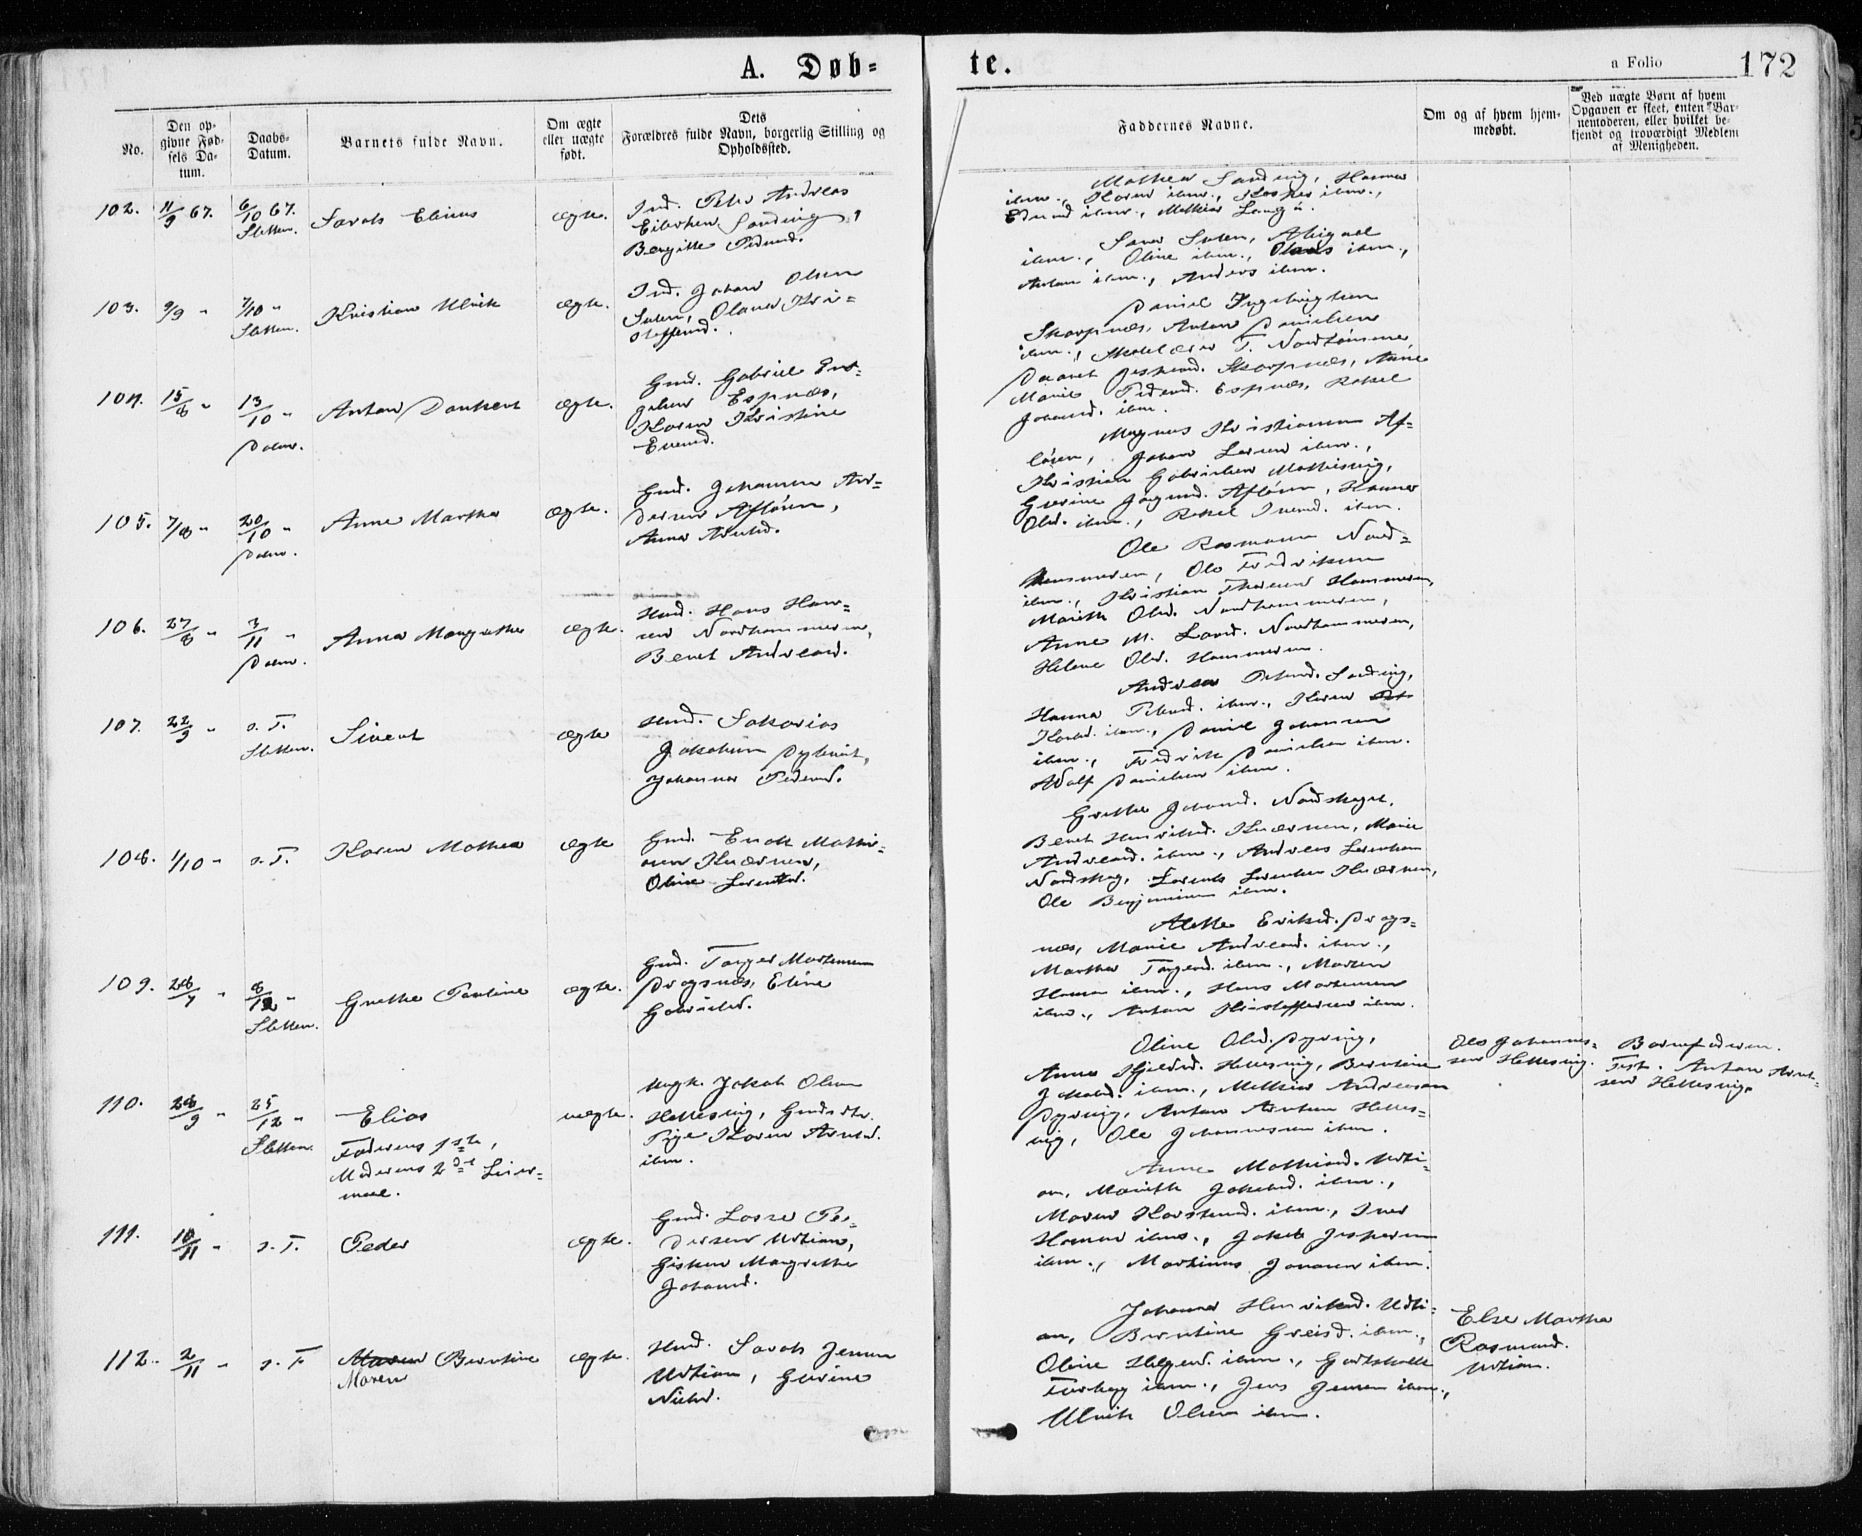 A. Døb=
te.
a Folio
172
No.
Den op-
givne Fød-
sels Da-
tum.
Daabs-
Datum.
Barnets fulde Navn.
Om ægte
eller uægte
født.
Dets
Forældres fulde Navn, borgerlig Stilling og
Opholdssted.
Faddernes Navne.
Om og af hvem hjem-
medøbt.
Ved uægte Børn af hvem
Opgaven er skeet, enten Bar-
nemoderen, eller hvilket be-
kjendt og troværdigt Medlem
af Menigheden.
102.
11/9 67.
6/10 67.
Sletten.
Sarah Elinus
ægte.
Ind. Peter Andreas
Eilertsen Sandvig,
Bergitte Pedersd.
Mathea Sandvig, Hanna
ibm., Karen ibm., Kasper ibm.,
Edvard ibm., Mathias
103.
9/9 "
7/10 "
Sletten.
Kristian Ulrik
ægte.
Ind. Johan Olsen
Olava Kri-
stoffersd.
Abigael
ibm., Oline ibm., ibm.,
Anton ibm., Anders ibm.
104.
15/8 "
13/10 "
Dolm.
Anton Dankert
ægte.
Gmd. Gabriel In-
gebr Espnæs,
Karen Kristine
Eriksd.
Daniel Ingebrigtsen
Skarpnæs, Anton Danielsen
ibm., Skolelærer T.
Jespersd. Skarpnæs, Anne
Marie Pedersd. Espnæs, Rakel
Johansd. ibm.
105.
7/8 "
20/10 "
Dolm.
Anne Martha
ægte.
Gmd. Johannes An-
dersen Afløien,
Anna Arntsd.
Magnus Kristiansen Af-
løien, Johan Larsen ibm.,
Kristian Gabrielsen
Afløien, Hanna
Olsd. ibm., Rakel Iversd. ibm.
106.
27/8 "
3/11 "
Dolm.
Anna Margrethe
ægte.
Hmd. Hans Han-
sen Nordhammeren,
Beret Andreasd.
Ole Rasmussen Nord-
hammeren, Ole Fredriksen
ibm., Kristian Hammeren,
Marith Olsd. Nordhammeren,
Anne M. Larsd. Nordhammeren,
Helene Olsd. Hammeren.
107.
22/9 "
s. T.
Sletten.
Sivert
ægte
Hmd. Sakarias
Jakobsen Dyrvik,
Johanna Pedersd.
Petersd. Sandvig,
Hanna Petersd. ibm., Karen
ibm., Daniel Johansen
ibm., Fredrik Danielsen ibm.
Adolf Danielsen ibm.
108.
1/10 "
s. T.
Karen Mathea
ægte
Gmd. Enok Mathi-
asen Kværnen,
Oline Lorentsd.
Grethe Johansd. Nordskaget.
Beret Henriksd. Kværnen, Marie
Andreasd. ibm., Andreas Lorentsen
Nordskag, Lorents Lorentsen Kværnen,
Ole Benjaminsen ibm.
109.
28/7 "
8/12 "
Sletten.
Grethe Pauline
ægte.
Gmd. Torger Mortensen
Dragsnæs, Eline
Gabrielsd.
Alette Eriksd. Drags-
næs, Marie Andreasd. ibm.,
Martha Torgersd. ibm., Morten
Hansen ibm., Hans Mortensen
ibm., Anton Kristoffersen ibm.
110.
28/9 "
25/12 "
Sletten.
Elias
Faderens 1ste,
Moderens 2det Leier-
maal.
uægte.
Ungk. Jakob Olsen
Hellesvig, Gmdsdtr.
Pige Karen Arntsd.
ibm.
Oline Olsd. Dyrvig,
Anna Hellesvig, Berntine
Jakobsd. ibm., Mathias Andreassen
Dyrvig, Anton Arntsen Helles-
vig, Ole Johannessen ibm.
Ole Johannes-
sen Hellesvig.
Barnefaderen.
Test. Anton Arnt-
sen Hellesvig.
111.
10/11 "
s. T.
Peder
ægte.
Gmd. Lasse Pe-
dersen Udtian,
Gisken Margrethe
Johansd.
Anne Mathiasd. Udti-
an, Marith Jakobsd. ibm.,
Maren Karstensd. ibm., Iver
Hansen ibm., Jakob Jespersen
ibm., Martinus Jonasen ibm.
112.
2/11 "
s. T
Maren Berntine
Maren
ægte.
Hmd. Jensen
Udtian, Gurine
Nielsd.
Johanna Henriksd. Udti-
an, Berntine ibm.,
Oline Helgesd. ibm., Godtskalk
ibm., Jens Jensen ibm.,
Ulrik Olsen ibm.
Else Martha
Rasmusd.
Udtian.